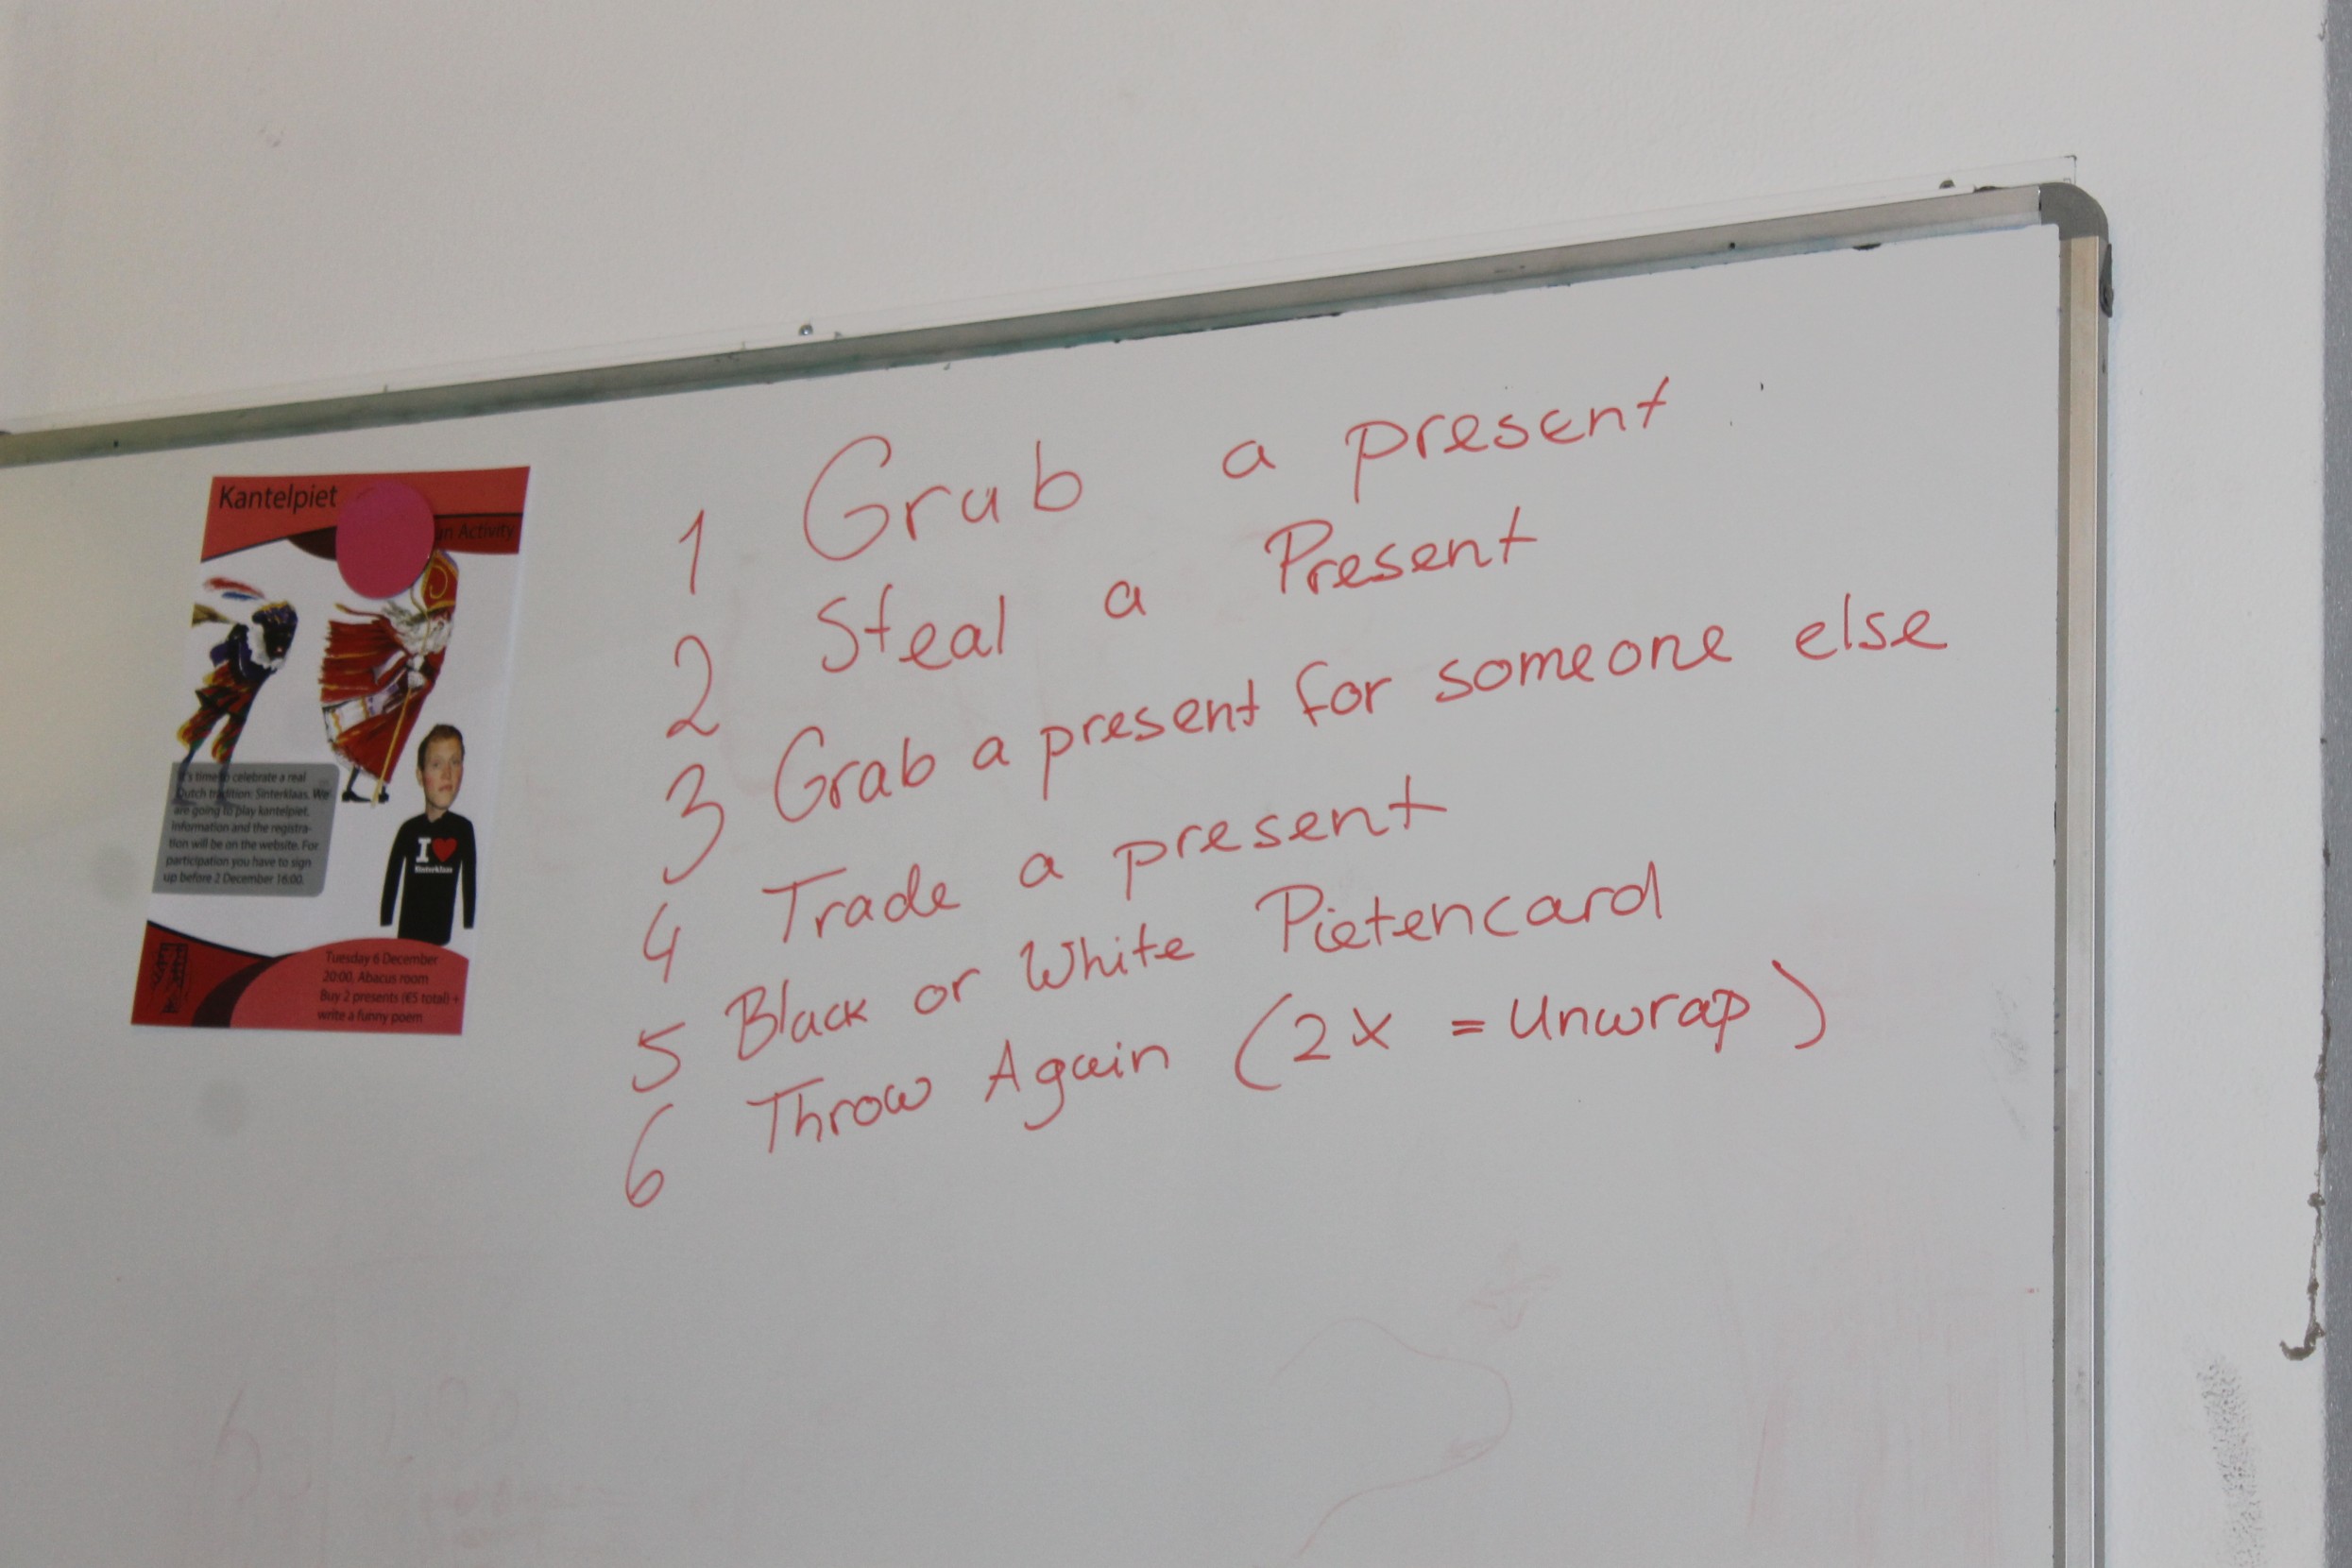 Kantelpiet
an Activity
It's time to celebrate a real
Dutch tradition: Sinterklaas. We
are going to play kantelpiet.
Information and the registra-
tion will be on the website. For
participation you have to sign
up before 2 December 16:00.
I ❤
Sinterklaas
Tuesday 6 December
20:00, Abacus room
Buy 2 presents (€5 total) +
write a funny poem
1 Grab a present
2 Steal a Present
3 Grab a present for someone else
4 Trade a present
5 Black or White Pietencard
6 Throw Again (2x = Unwrap)